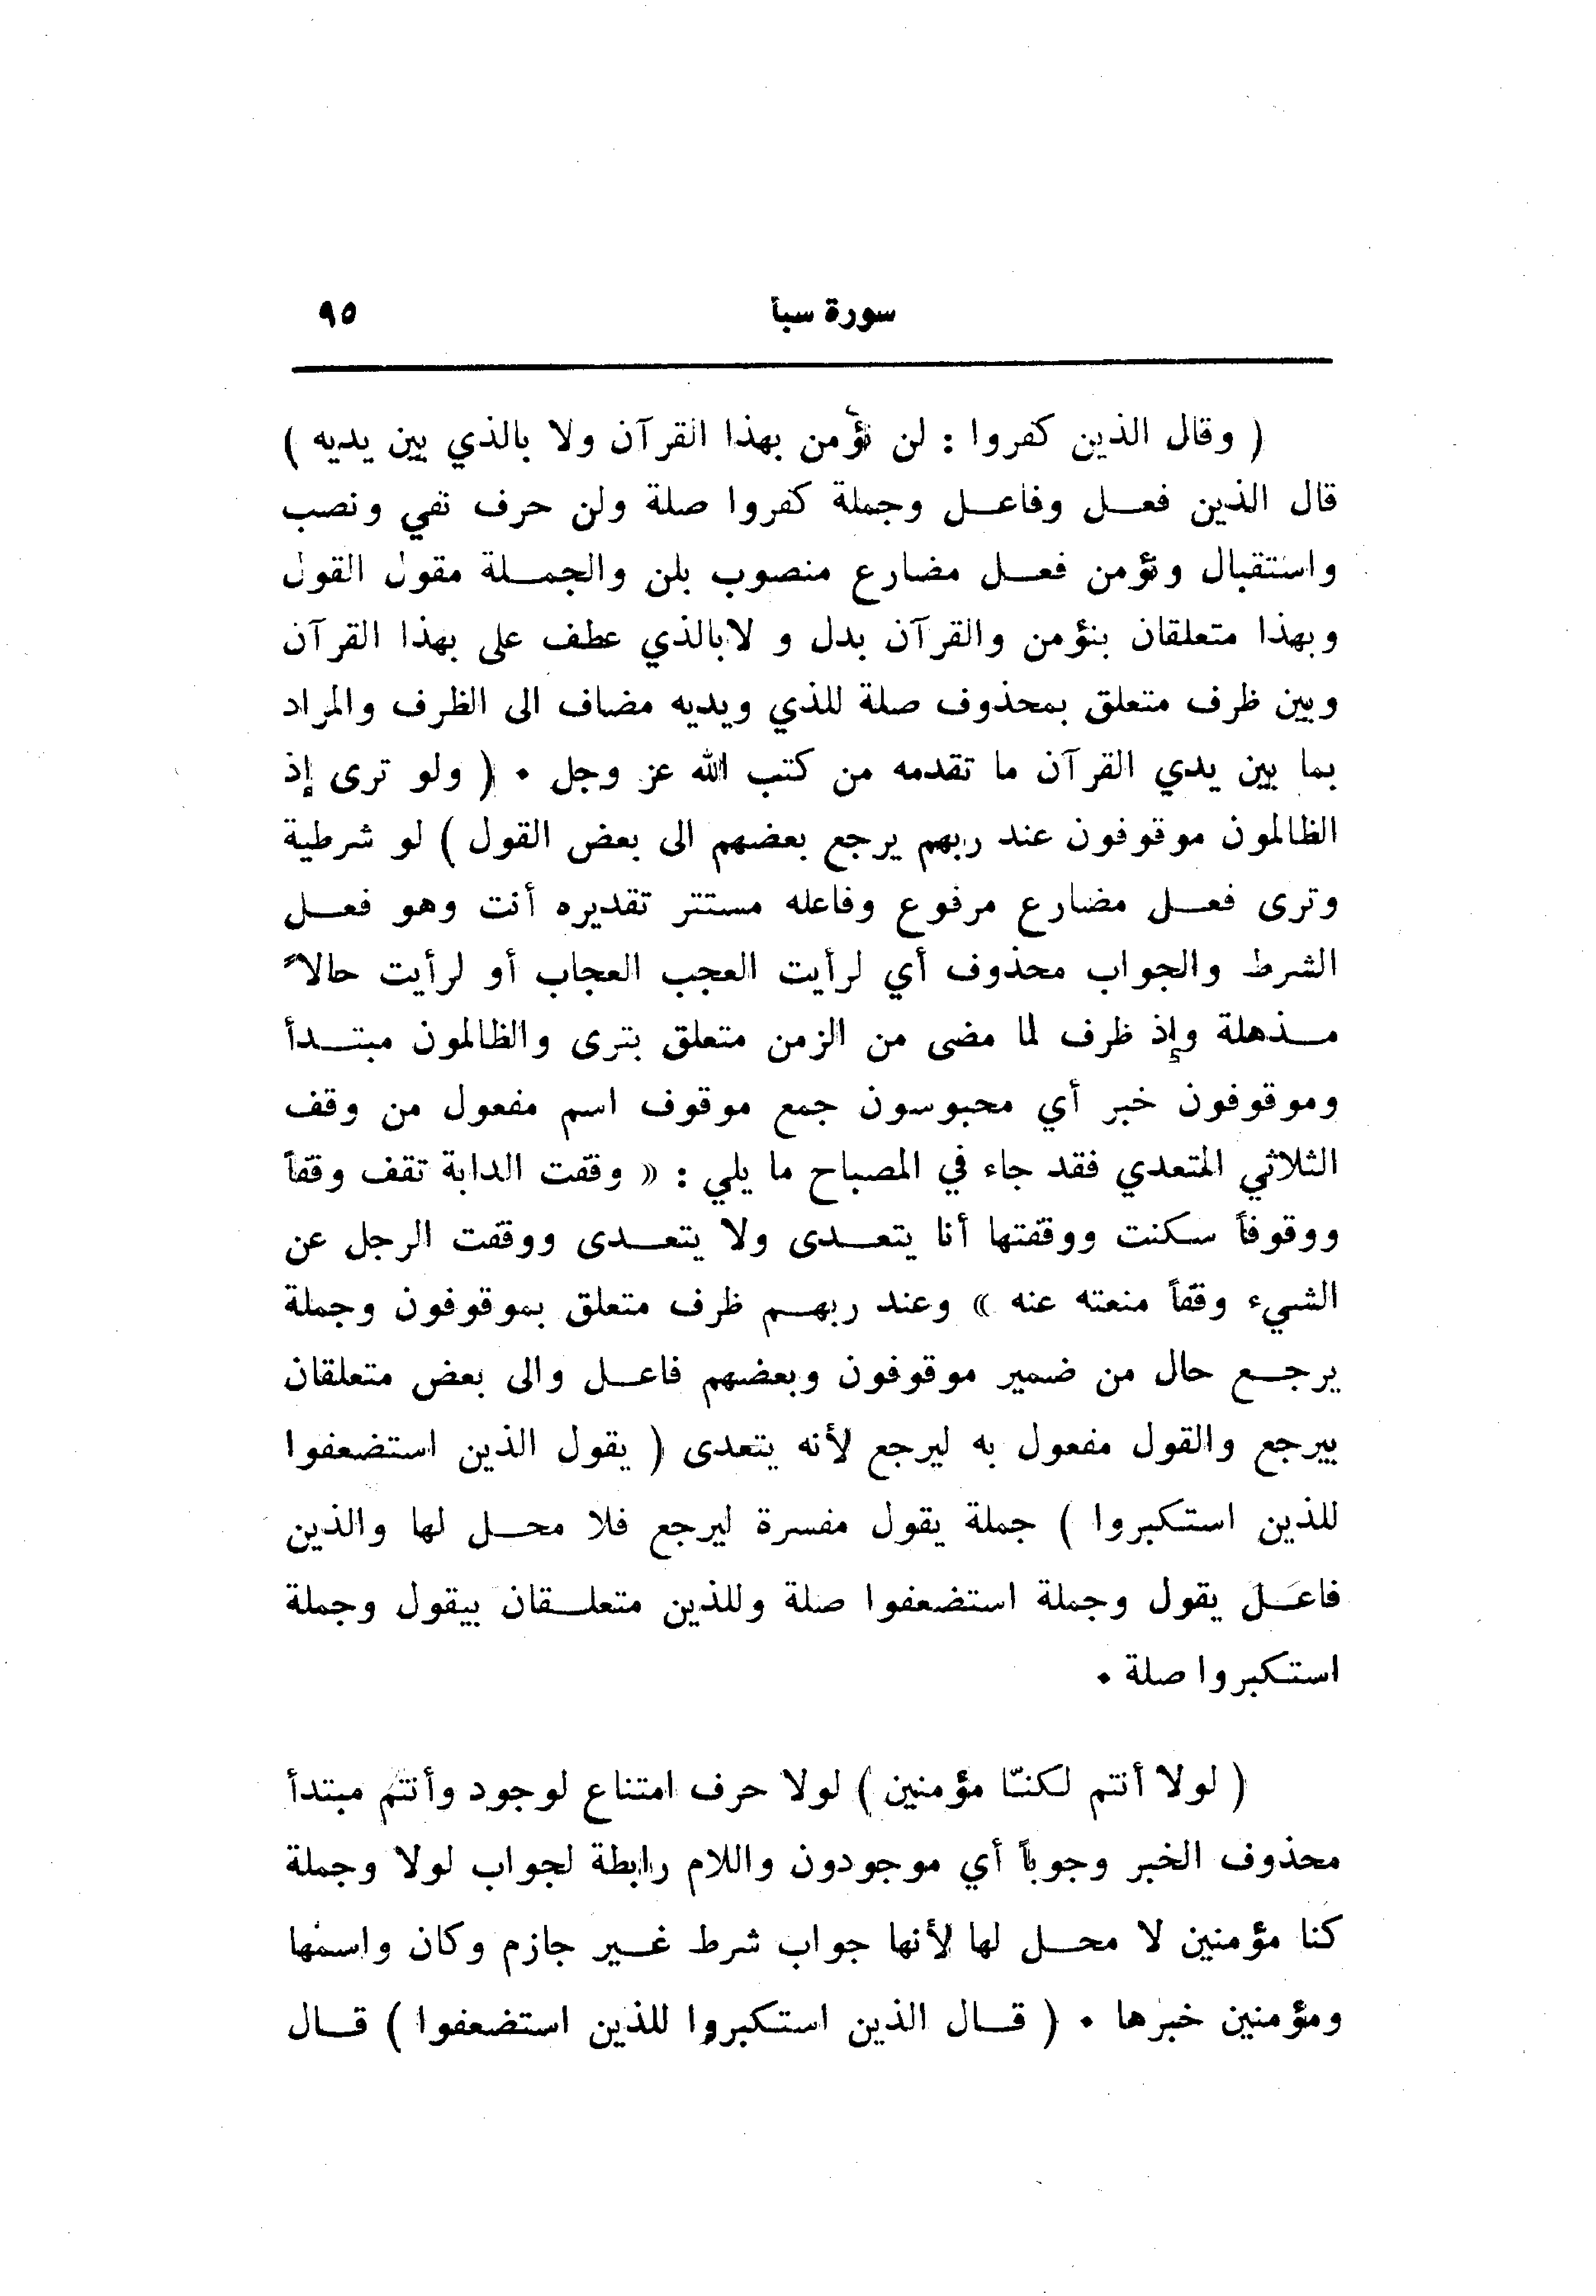 سورة سبأ ٩٥
( وقال الذين كفروا : لن نؤمن بهذا القرآن ولا بالذي بين يديه )
قال الذين فعل وفاعل وجملة كفروا صلة ولن حرف نفي ونصب
واستقبال ونؤمن فعل مضارع منصوب بلن والجملة مقول القول
وبهذا متعلقان بنؤمن والقرآن بدل و لابالذي عطف على بهذا القرآن
وبين ظرف متعلق بمحذوف صلة للذي ويديه مضاف الى الظرف والمراد
بما بين يدي القرآن ما تقدمه من كتب الله عز وجل . ( ولو ترى إذ
الظالمون موقوفون عند ربهم يرجع بعضهم الى بعض القول ) لو شرطية
وترى فعل مضارع مرفوع وفاعله مستتر تقديره أنت وهو فعل
الشرط والجواب محذوف أي لرأيت العجب العجاب أو لرأيت حالاً
مذهلة وإذ ظرف لما مضى من الزمن متعلق بترى والظالمون مبتدأ
وموقوفون خبر أي محبوسون جمع موقوف اسم مفعول من وقف
الثلاثي المتعدي فقد جاء في المصباح ما يلي : « وقفت الدابة تقف وقفاً
ووقوفاً سكنت ووقفتها أنا يتعدى ولا يتعدى ووقفت الرجل عن
الشيء وقفاً منعته عنه » وعند ربهم ظرف متعلق بموقوفون وجملة
يرجع حال من ضمير موقوفون وبعضهم فاعل والى بعض متعلقان
بيرجع والقول مفعول به ليرجع لأنه يتعدى ( يقول الذين استضعفوا
للذين استكبروا ) جملة يقول مفسرة ليرجع فلا محل لها والذين
فاعل يقول وجملة استضعفوا صلة وللذين متعلقان بيقول وجملة
استكبروا صلة .
( لولا أنتم لكنّا مؤمنين ) لولا حرف امتناع لوجود وأنتم مبتدأ
محذوف الخبر وجوباً أي موجودون واللام رابطة لجواب لولا وجملة
كنا مؤمنين لا محل لها لأنها جواب شرط غير جازم وكان واسمها
ومؤمنين خبرها . ( قال الذين استكبروا للذين استضعفوا ) قال